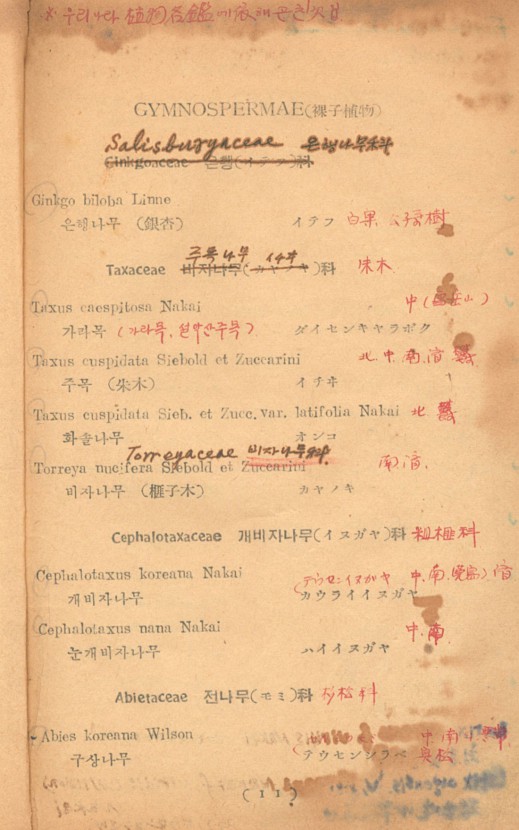 ※ 우리나라 植物名鑑
GYMNOSPERMAE(裸子植物)
Salisburyaceae 은행나무科
Ginkgoaceae 은행(イテフ)科
Ginkgo biloba Linne
은행나무 (銀杏) イテフ 白果 公孫樹
주목나무 イチヰ
Taxaceae 비자나무(カヤノキ)科 朱木
Taxus caespitosa Nakai 中
가라목 (가라목, 설악산주목) ダイセンキヤラボク
Taxus cuspidata Siebold et Zuccarini 北, 中, 南, 濟
주목 (朱木) イチヰ
Taxus cuspidata Sieb. et Zucc. var. latifolia Nakai 北
화솔나무 オンコ
Torreyaceae 비자나무科
Torreya nucifera Siebold et Zuccarini 南, 濟.
비자나무 (榧子木) カヤノキ
Cephalotaxaceae 개비자나무(イヌガヤ)科 粗榧科
Cephalotaxus koreana Nakai テウセンイヌガヤ 中, 南,
개비자나무 カウライイヌガヤ
Cephalotaxus nana Nakai 中, 南
눈개비자나무 ハイイヌガヤ
Abietaceae 전나무(モミ)科 杉松科
Abies koreana Wilson 中, 南
구상나무 テウセンシラベ
(11)